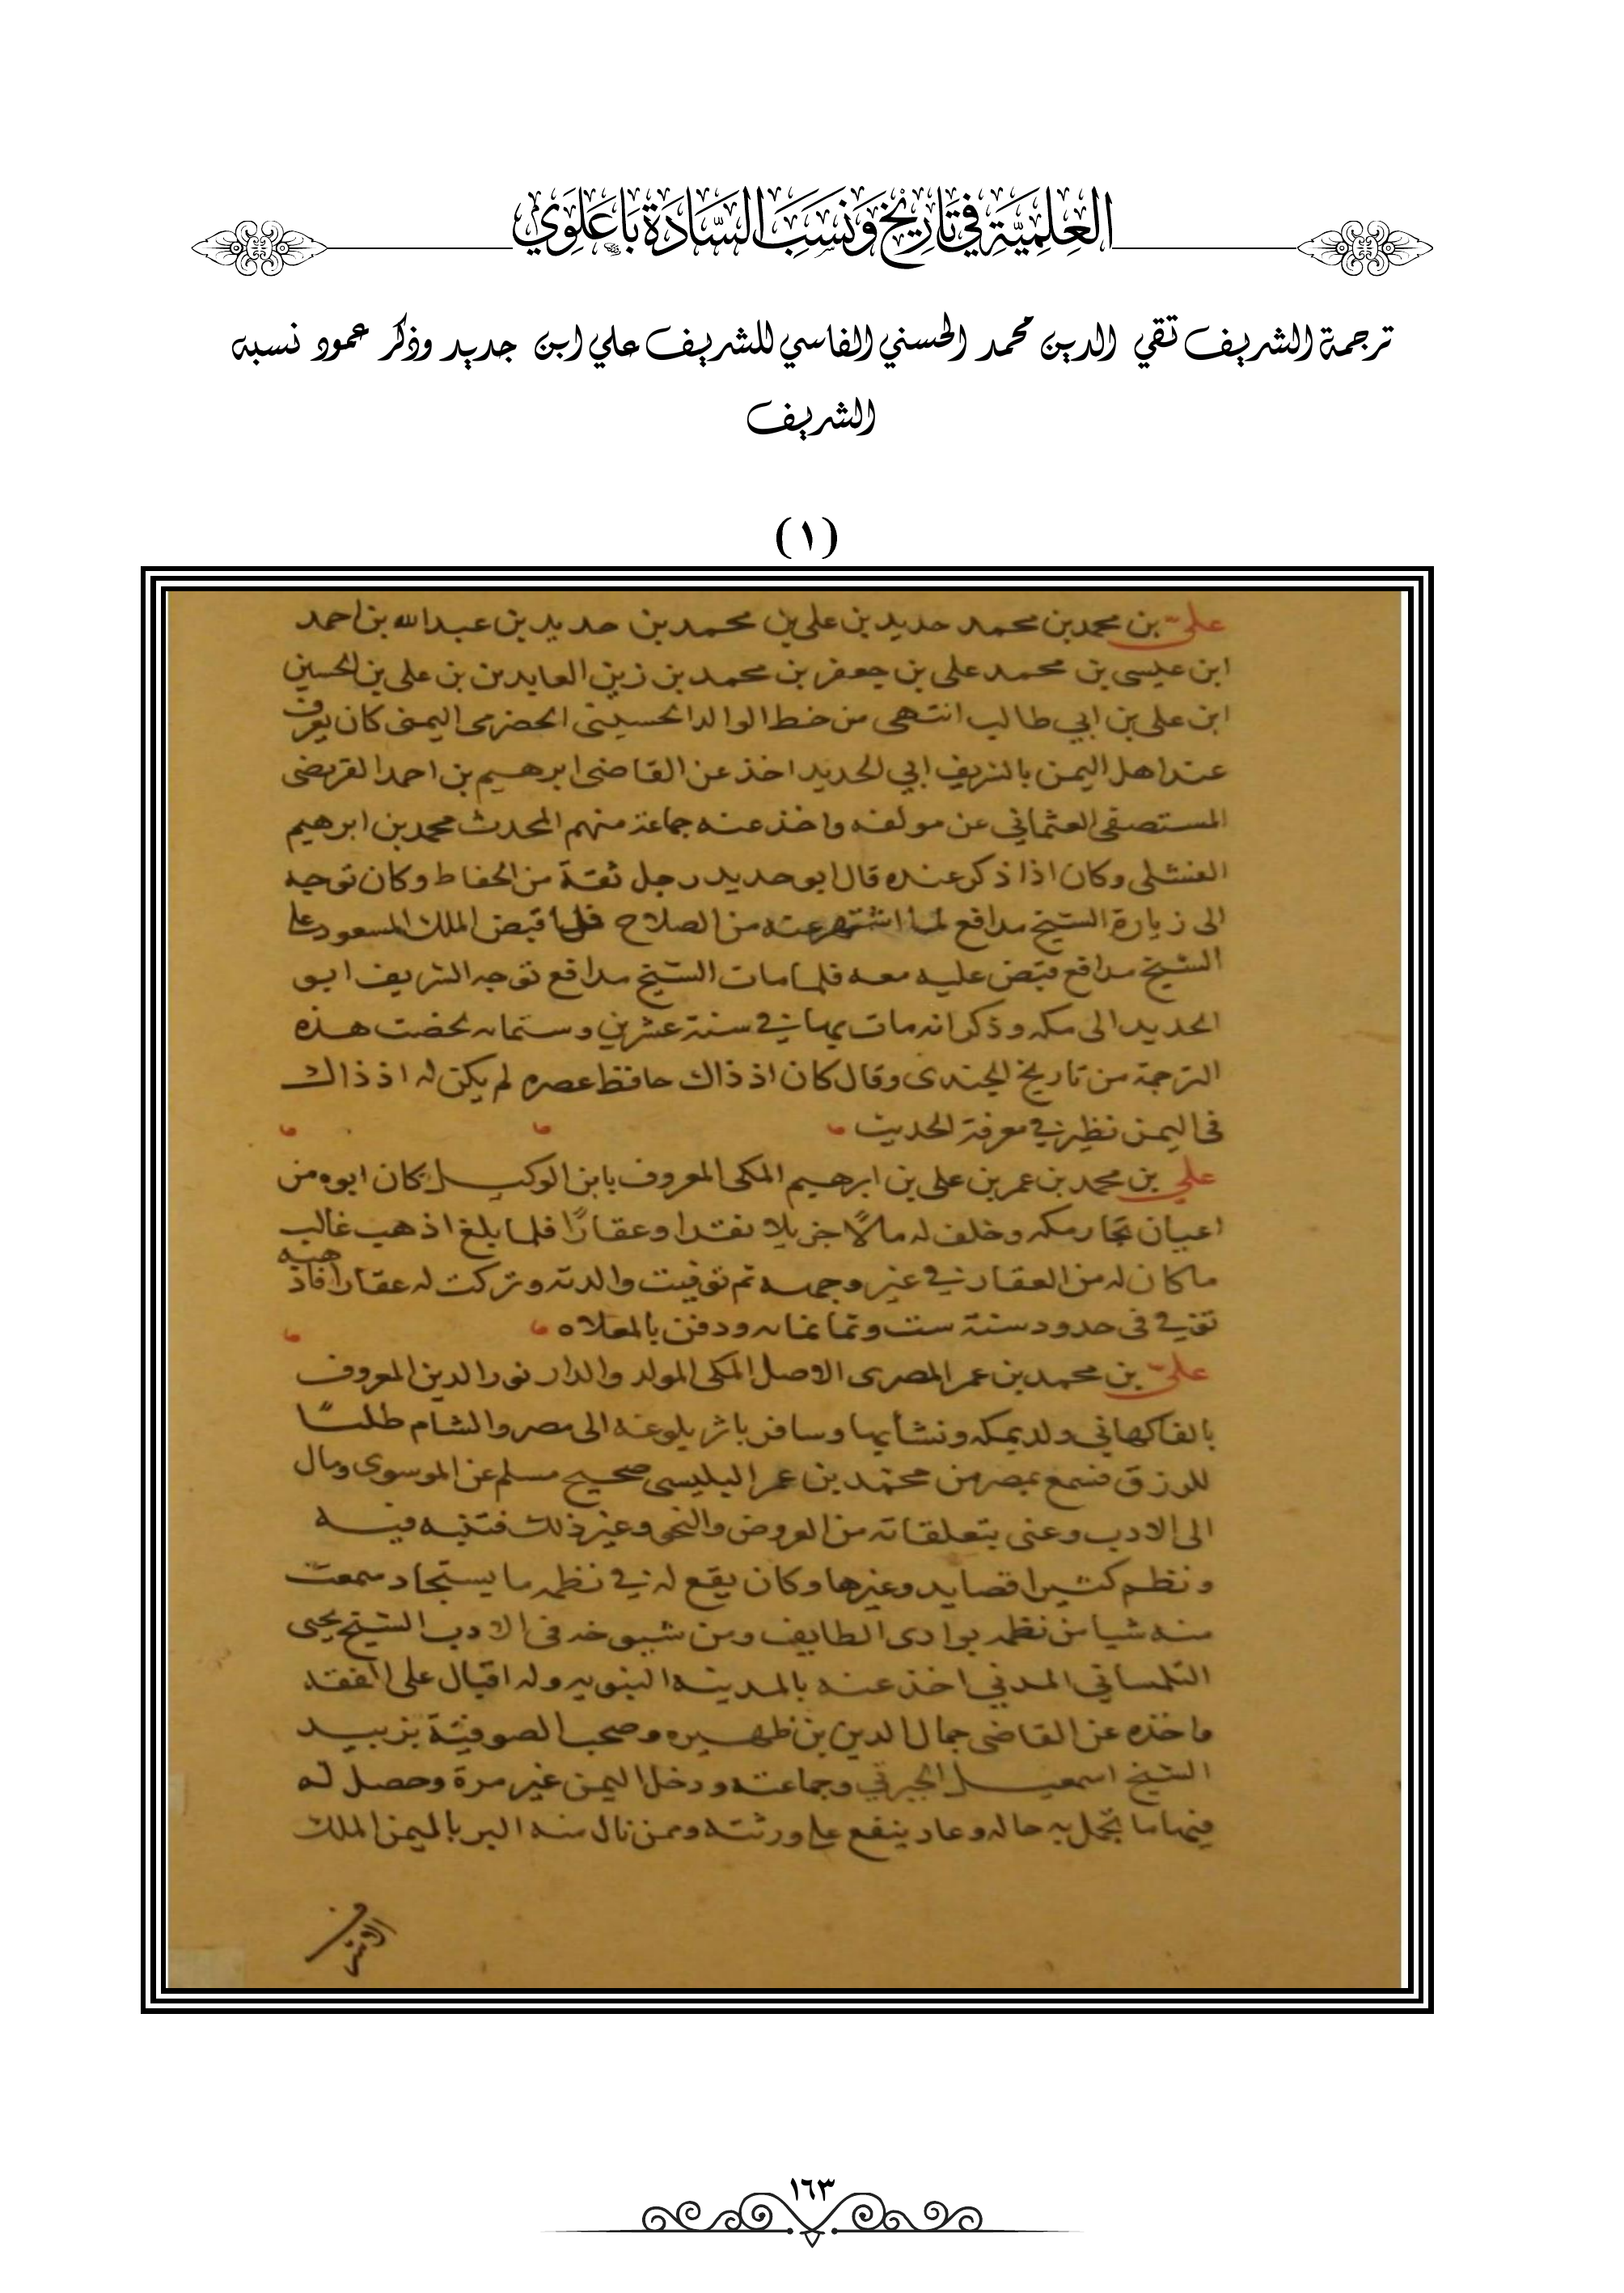 العِلْمِيَّةِ فِي تَارِيْخ وَنَسَبَ السَّادَةِ بَاعَلَوِي
ترجمة الشريف تقي الدين محمد الحسني الفاسي للشريف علي ابن جديد وذكر عمود نسبه
الشريف
(١)
علي بن محمد بن محمد حديد بن علي بن محمد بن حديد بن عبدالله بن احمد
ابن عيسى بن محمد علي بن جعفر بن محمد بن زين العابدين بن علي بن الحسين
ابن علي بن ابي طالب انتهى من خط الوالد الحسيني الحضرمى اليمنى كان يعرف
عند اهل اليمن بالشريف ابي الحديد اخذ عن القاضى ابرهيم بن احمد القريضى
المستصفى العثماني عن مولفه واخذ عنه جماعة منهم المحدث محمد بن ابرهيم
الفنشلى وكان اذا ذكر عنده قال ابو حديد رجل ثقة من الحفاظ وكان توجه
الى زيارة الشيخ مدافع لما اشتهر عنه من الصلاح فلما قبض الملك المسعود على
الشيخ مدافع قبض عليه معه فلما مات الشيخ مدافع توجه الشريف ابو
الحديد الى مكه وذكر انه مات بها في سنة عشرين وستمايه لخصت هذه
الترجمة من تاريخ الجندى وقال كان اذ ذاك حافظ عصره لم يكن له اذ ذاك
فى اليمن نظير في معرفة الحديث
علي بن محمد بن عمر بن على بن ابرهيم المكى المعروف بابن الوكيل كان ابوه من
اعيان تجار مكه وخلف له مالاً جزيلا نقدا وعقارًا فلما بلغ اذهب غالب
ما كان له من العقار في غير وجهه ثم توفيت والدته وتركت له عقارا فاذهبه
توفي فى حدود سنة ست وثمانمايه ودفن بالمعلاه
علي بن محمد بن عمر المصرى الاصل المكى المولد والدار نور الدين المعروف
بالفاكهاني ولد بمكه ونشأ بها وسافر باثر بلوغه الى مصر والشام طلبًا
للرزق فسمع بمصر من محمد بن عمر البلبيسى صحيح مسلم عن الموسوى ومال
الى الادب وعنى بتعلقاته من العروض والنحو وغير ذلك فتنبه فيه
ونظم كثيرا قصايد وغيرها وكان يقع له في نظمه ما يستجاد سمعت
منه شيا من نظمه بوادى الطايف ومن شيوخه فى الادب الشيخ يحيى
التلمساني المدني اخذ عنه بالمدينه النبويه وله اقبال على الفقه
واخذه عن القاضى جمال الدين بن ظهيره وصحب الصوفية بزبيد
الشيخ اسمعيل الجبرتي وجماعته ودخل اليمن غير مرة وحصل له
فيها ما تجمل به حاله وعاد بنفع على ورثته وممن نال منه البر باليمن الملك
الاشرف
١٦٣